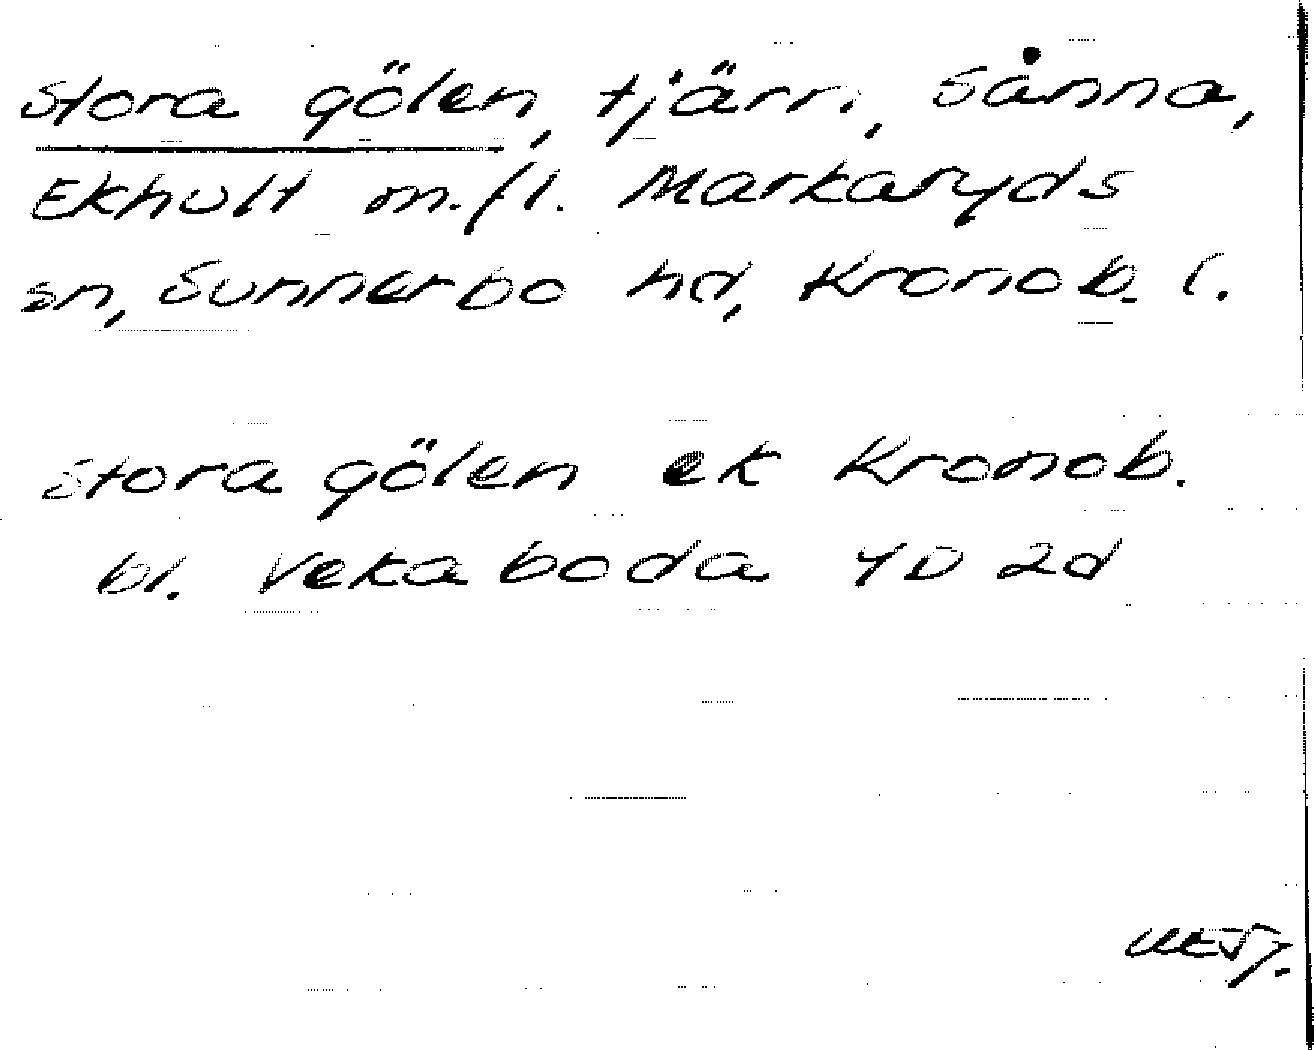 Stora gölen, tjärn, Sånna,
Ekhult m.fl. Markaryds
sn, Sunnerbo hd, Kronob. l.
Stora gölen ek Kronob.
bl. Vekaboda 4D 2d